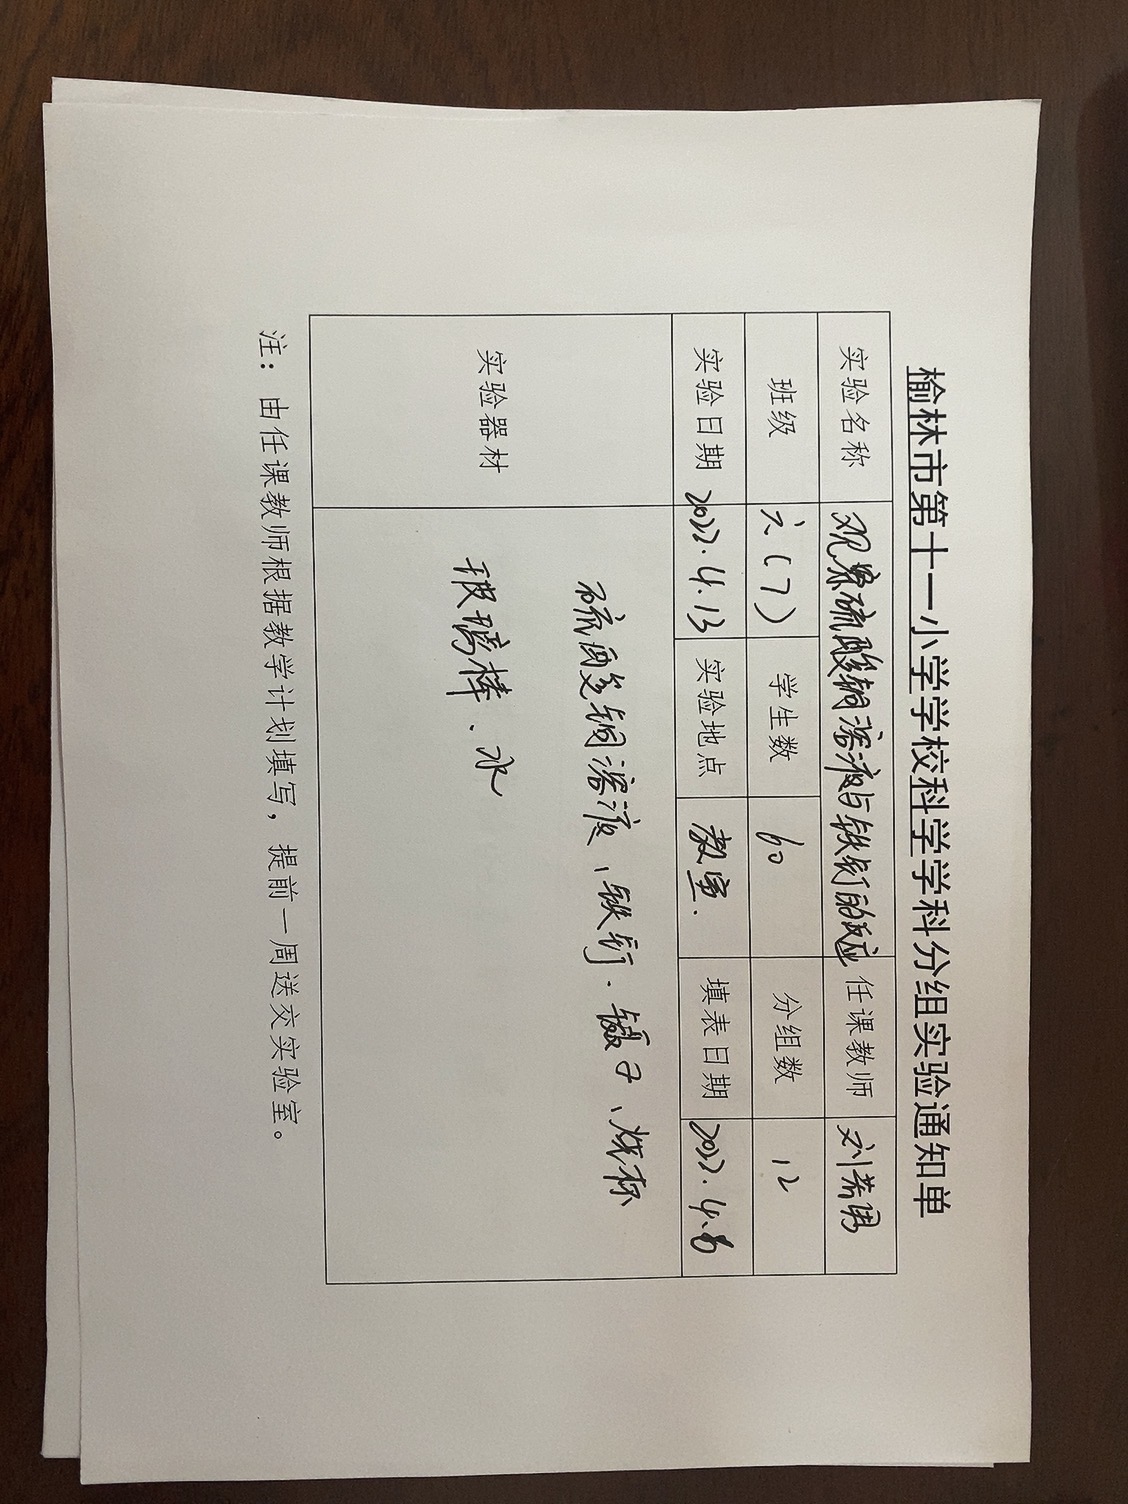 榆林市第十一小学学校科学学科分组实验通知单
实验名称 观察硫酸铜溶液与铁钉的反应 任课教师
班级 六(7) 学生数 60 分组数 12
实验日期 2022.4.13 实验地点 教室. 填表日期 2022.4.6
实验器材 硫酸铜溶液、铁钉.镊子、烧杯
玻璃棒、水
注：由任课教师根据教学计划填写，提前一周送交实验室。